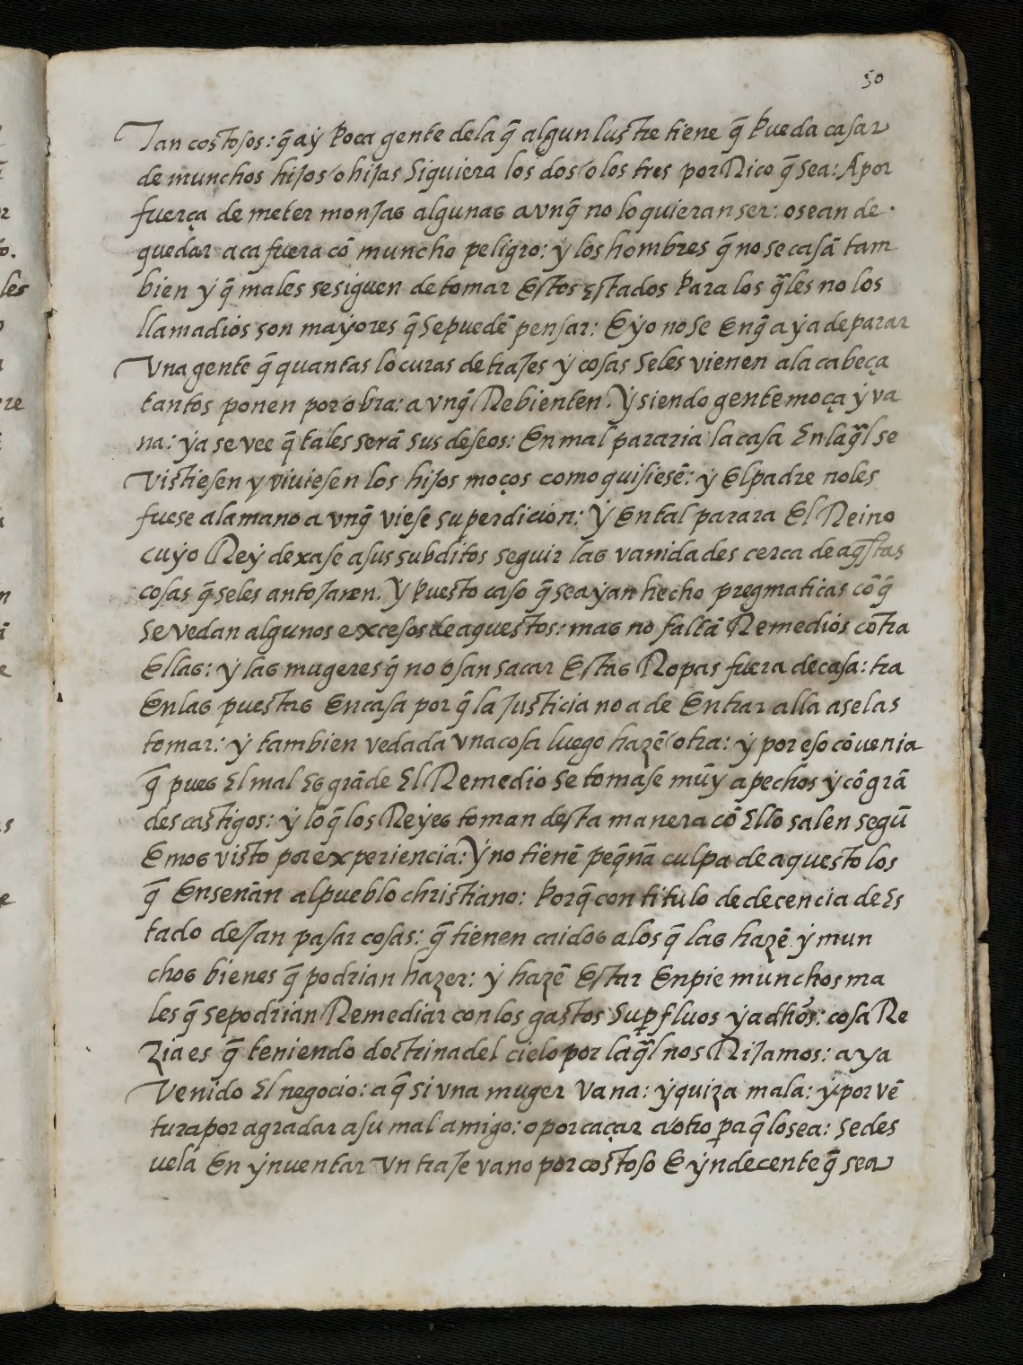 50
Tan costosos: q̃ aẏ poca gente dela q̃ algun lustre tiene q̃ pueda casar
de munchos hijos / o hijas siquiera los dos / o los tres por Rico q̃ sea: A por
fuerça de meter monjas algunas avnq̃ no lo quieran ser: o sean de
quedar aca fuera cõ muncho peligro: ẏ los hombres q̃ no se casã tam
bien ẏ q̃ males se siguen de tomar Estos Estados para los q̃les no los
llama diós son maẏores q̃ se puedẽ pensar: E ẏo no se En q̃ a ẏa de parar
Vna gente q̃ quantas locuras de trajes ẏ cosas se les vienen ala cabeça
tantos ponen por obra: a vnq̃ Rebienten. Ẏ siendo gente moça ẏ va
na: ẏa se vee q̃ tales serã sus deseos: En mal pararia la casa En la q̃l se
vistiesen y viuiesen los hijos moços como quisiesẽ: ẏ El padre no les
fuese ala mano a vnq̃ viese su perdición: Ẏ En tal parara El Reino
cuẏo Reẏ dexase a sus subditos seguir las vanidades cerca de aq̃stas
cosas q̃ se les antojaren. Ẏ puesto caso q̃ se aẏan hecho pregmaticas cõ q̃
se vedan algunos excesos de aquestos: mas no faltã Remedios cõtra
Ellas: ẏ las mugeres q̃ no osan sacar Estas Ropas fuera de casa: tra
En las puestas En casa por q̃ la Justicia no a de Entrar alla a se las
tomar: ẏ tambien vedada vna cosa luego hazẽ / otra: ẏ por eso cõuenia
q̃ pues El mal Es grãde El Remedio se tomase muẏ a pechos ẏ cõ grã
des castigos: ẏ lo q̃ los Reẏes toman desta manera cõ Ello salen segũ
Emos visto por experiencia: Ẏ no tienẽ peq̃na culpa de aquesto los
q̃ Enseñan al pueblo christiano: Porq̃ con titulo de decencia de Es
tado dejan pasar cosas: q̃ tienen caidos a los q̃ las hazẽ ẏ mun
chos bienes q̃ podrian hazer: ẏ hazẽ Estar En pie munchos ma
les q̃ se podrian Remediar con los gastos supfluos ẏa dhos: cosa Re
zia es q̃ teniendo doctrina del cielo por la q̃l nos Rijamos: a ya
Venido El negocio: a q̃ si vna muger vana: ẏ quiza mala: ẏ por vẽ
tura por agradar a su mal amigo: o por caçar a otro pa q̃ lo sea: se des
uela En ẏnuentar vn traje vano por costoso E ẏndecente q̃ sea